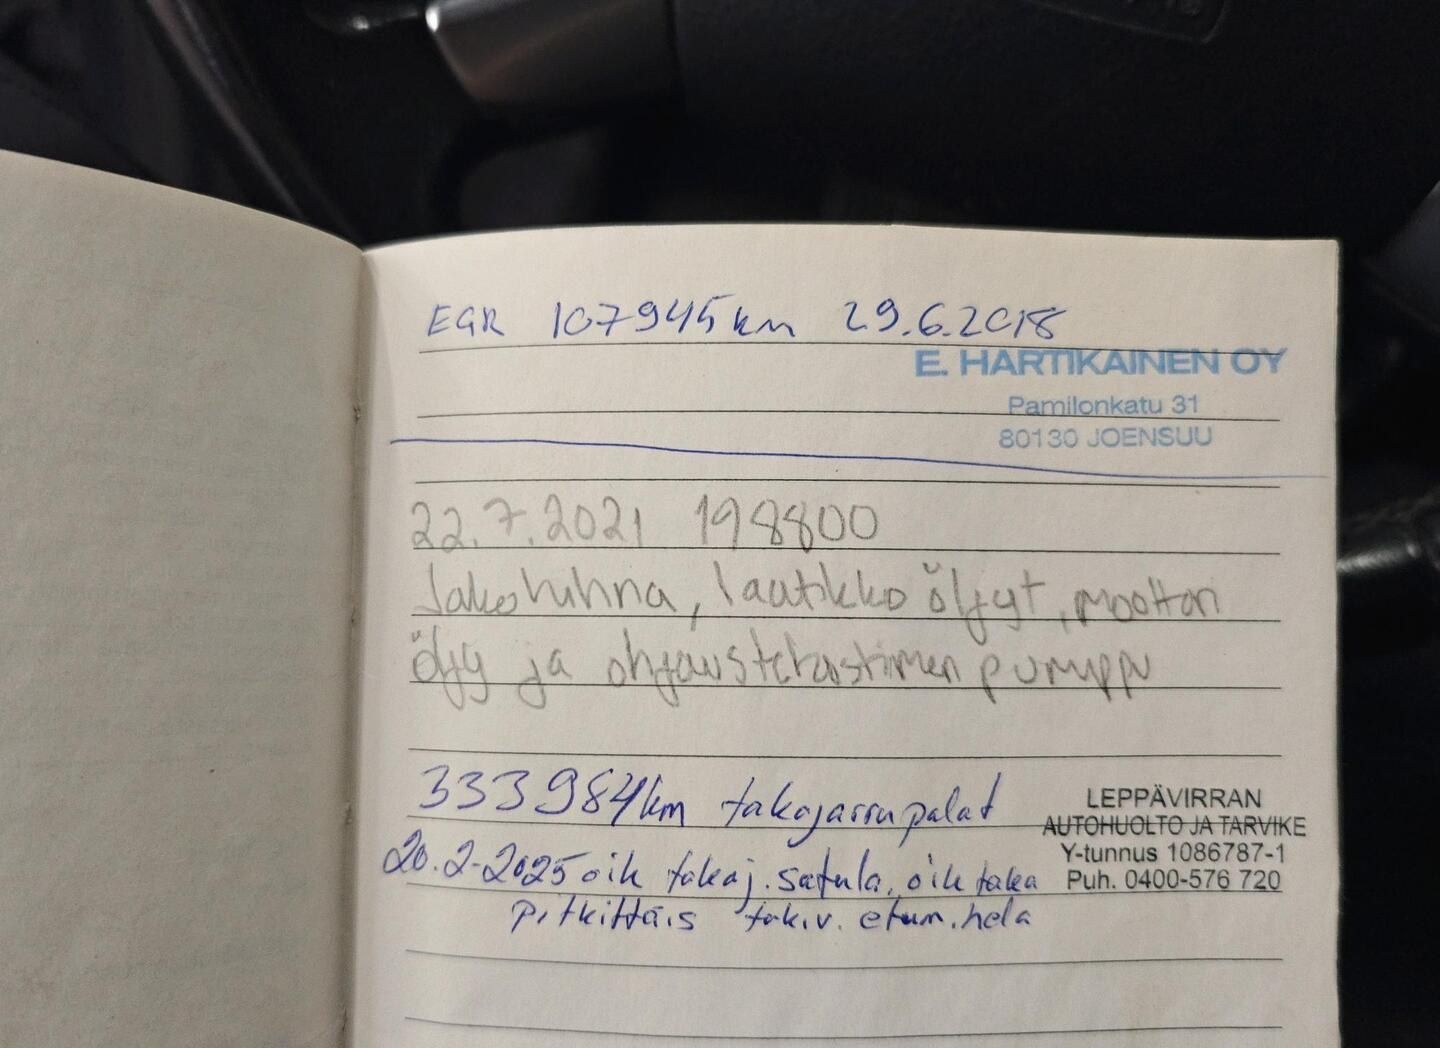 EGR 107945 km 29.6.2018
E. HARTIKAINEN OY
Pamilonkatu 31
80130 JOENSUU
22.7.2021 198800
Jakohihna, laatikko öljyt, moottori
öljy ja ohjaustehostimen pumppu
333984 km takajarrupalat
LEPPÄVIRRAN
AUTOHUOLTO JA TARVIKE
Y-tunnus 1086787-1
Puh. 0400-576 720
20.2-2025 oik takaj. satula, oik taka
pitkittäis tukiv. etum. hela